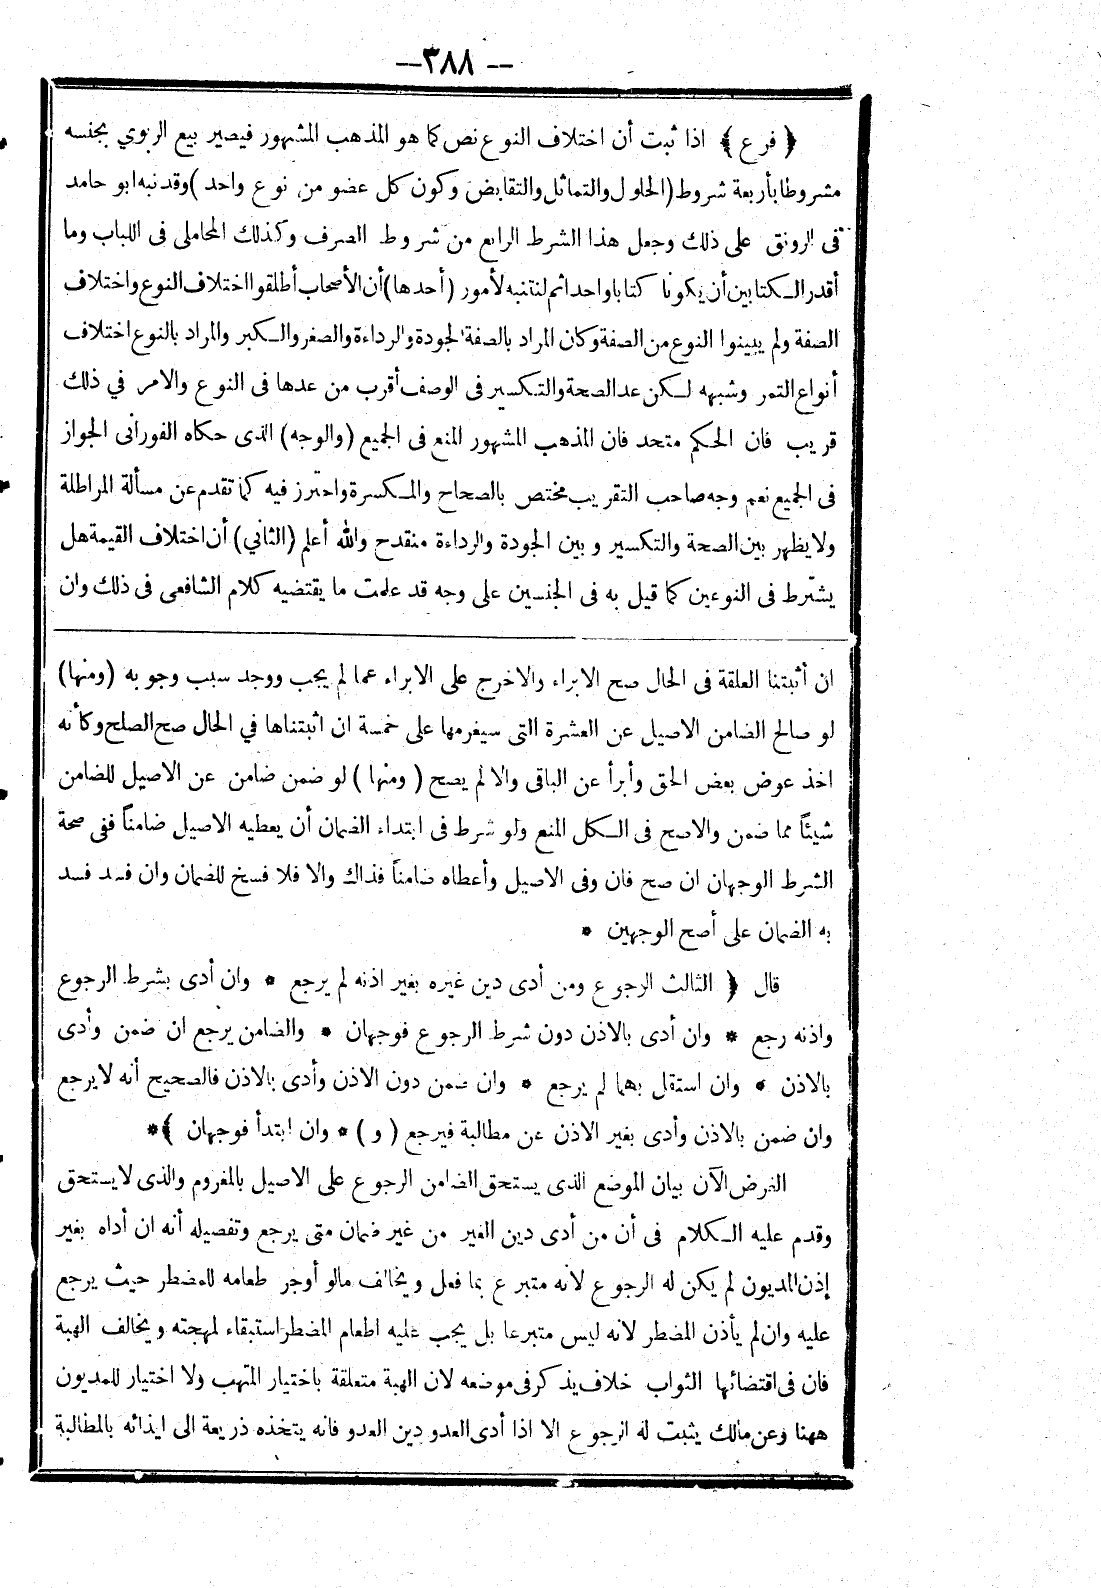 -- ٣٨٨ --
﴿ فرع ﴾ اذا ثبت أن اختلاف النوع نص كما هو المذهب المشهور فيصير بيع الربوي بجنسه
مشروطا بأربعة شروط (الحلول والتماثل والتقابض وكون كل عضو من نوع واحد) وقد نبه ابو حامد
فى الرونق على ذلك وجعل هذا الشرط الرابع من شروط الصرف وكذلك المحاملى فى اللباب وما
أقدر الـكتابين أن يكونا كتابا واحدا ثم لنتنبه لأمور (أحدها) أن الأصحاب أطلقوا اختلاف النوع واختلاف
الصفة ولم يبينوا النوع من الصفة وكان المراد بالصفة الجودة والرداءة والصغر والـكبر والمراد بالنوع اختلاف
أنواع التمر وشبهه لـكن عد الصحة والتـكسير فى الوصف أقرب من عدها فى النوع والامر في ذلك
قريب فان الحكم متحد فان المذهب المشهور المنع فى الجميع (والوجه) الذى حكاه الفورانى الجواز
فى الجميع نعم وجه صاحب التقريب مختص بالصحاح والمـكسرة واحترز فيه كما تقدم عن مسألة المراطلة
ولا يظهر بين الصحة والتكسير وبين الجودة والرداءة منقدح والله أعلم (الثاني) أن اختلاف القيمة هل
يشترط فى النوعين كما قيل به فى الجنسين على وجه قد علمت ما يقتضيه كلام الشافعى فى ذلك وان
ان أثبتنا العلقة فى الحال صح الابراء والاخرج على الابراء عما لم يجب ووجد سبب وجوبه (ومنها)
لو صالح الضامن الاصيل عن العشرة التى سيغرمها على خمسة ان اثبتناها في الحال صح الصلح وكأنه
اخذ عوض بعض الحق وأبرأ عن الباقى والا لم يصح (ومنها) لو ضمن ضامن عن الاصيل للضامن
شيئاً مما ضمن والاصح فى الـكل المنع ولو شرط فى ابتداء الضمان أن يعطيه الاصيل ضامناً ففى صحة
الشرط الوجهان ان صح فان وفى الاصيل وأعطاه ضامناً فذاك والا فلا فسخ للضمان وان فسد فسد
به الضمان على أصح الوجهين *
قال ﴿ الثالث الرجوع ومن أدى دين غيره بغير اذنه لم يرجع * وان أدى بشرط الرجوع
واذنه رجع * وان أدى بالاذن دون شرط الرجوع فوجهان * والضامن يرجع ان ضمن وأدى
بالاذن * وان استقل بهما لم يرجع * وان ضمن دون الاذن وأدى بالاذن فالصحيح أنه لا يرجع
وان ضمن بالاذن وأدى بغير الاذن عن مطالبة فيرجع (و) * وان ابتدأ فوجهان ﴾ *
الغرض الآن بيان الموضع الذى يستحق الضامن الرجوع على الاصيل بالمغروم والذى لا يستحق
وقدم عليه الـكلام فى أن من أدى دين الغير من غير ضمان متى يرجع وتفصيله أنه ان أداه بغير
إذن المديون لم يكن له الرجوع لأنه متبرع بما فعل ويخالف مالو أوجر طعامه للمضطر حيث يرجع
عليه وان لم يأذن المضطر لانه ليس متبرعا بل يجب عليه اطعام المضطر استبقاء لمهجته ويخالف الهبة
فان فى اقتضائها الثواب خلاف يذكر فى موضعه لان الهبة متعلقة باختيار المتهب ولا اختيار للمديون
ههنا وعن مالك يثبت له الرجوع الا اذا أدى العدو دين العدو فانه يتخذه ذريعة الى ايذائه بالمطالبة